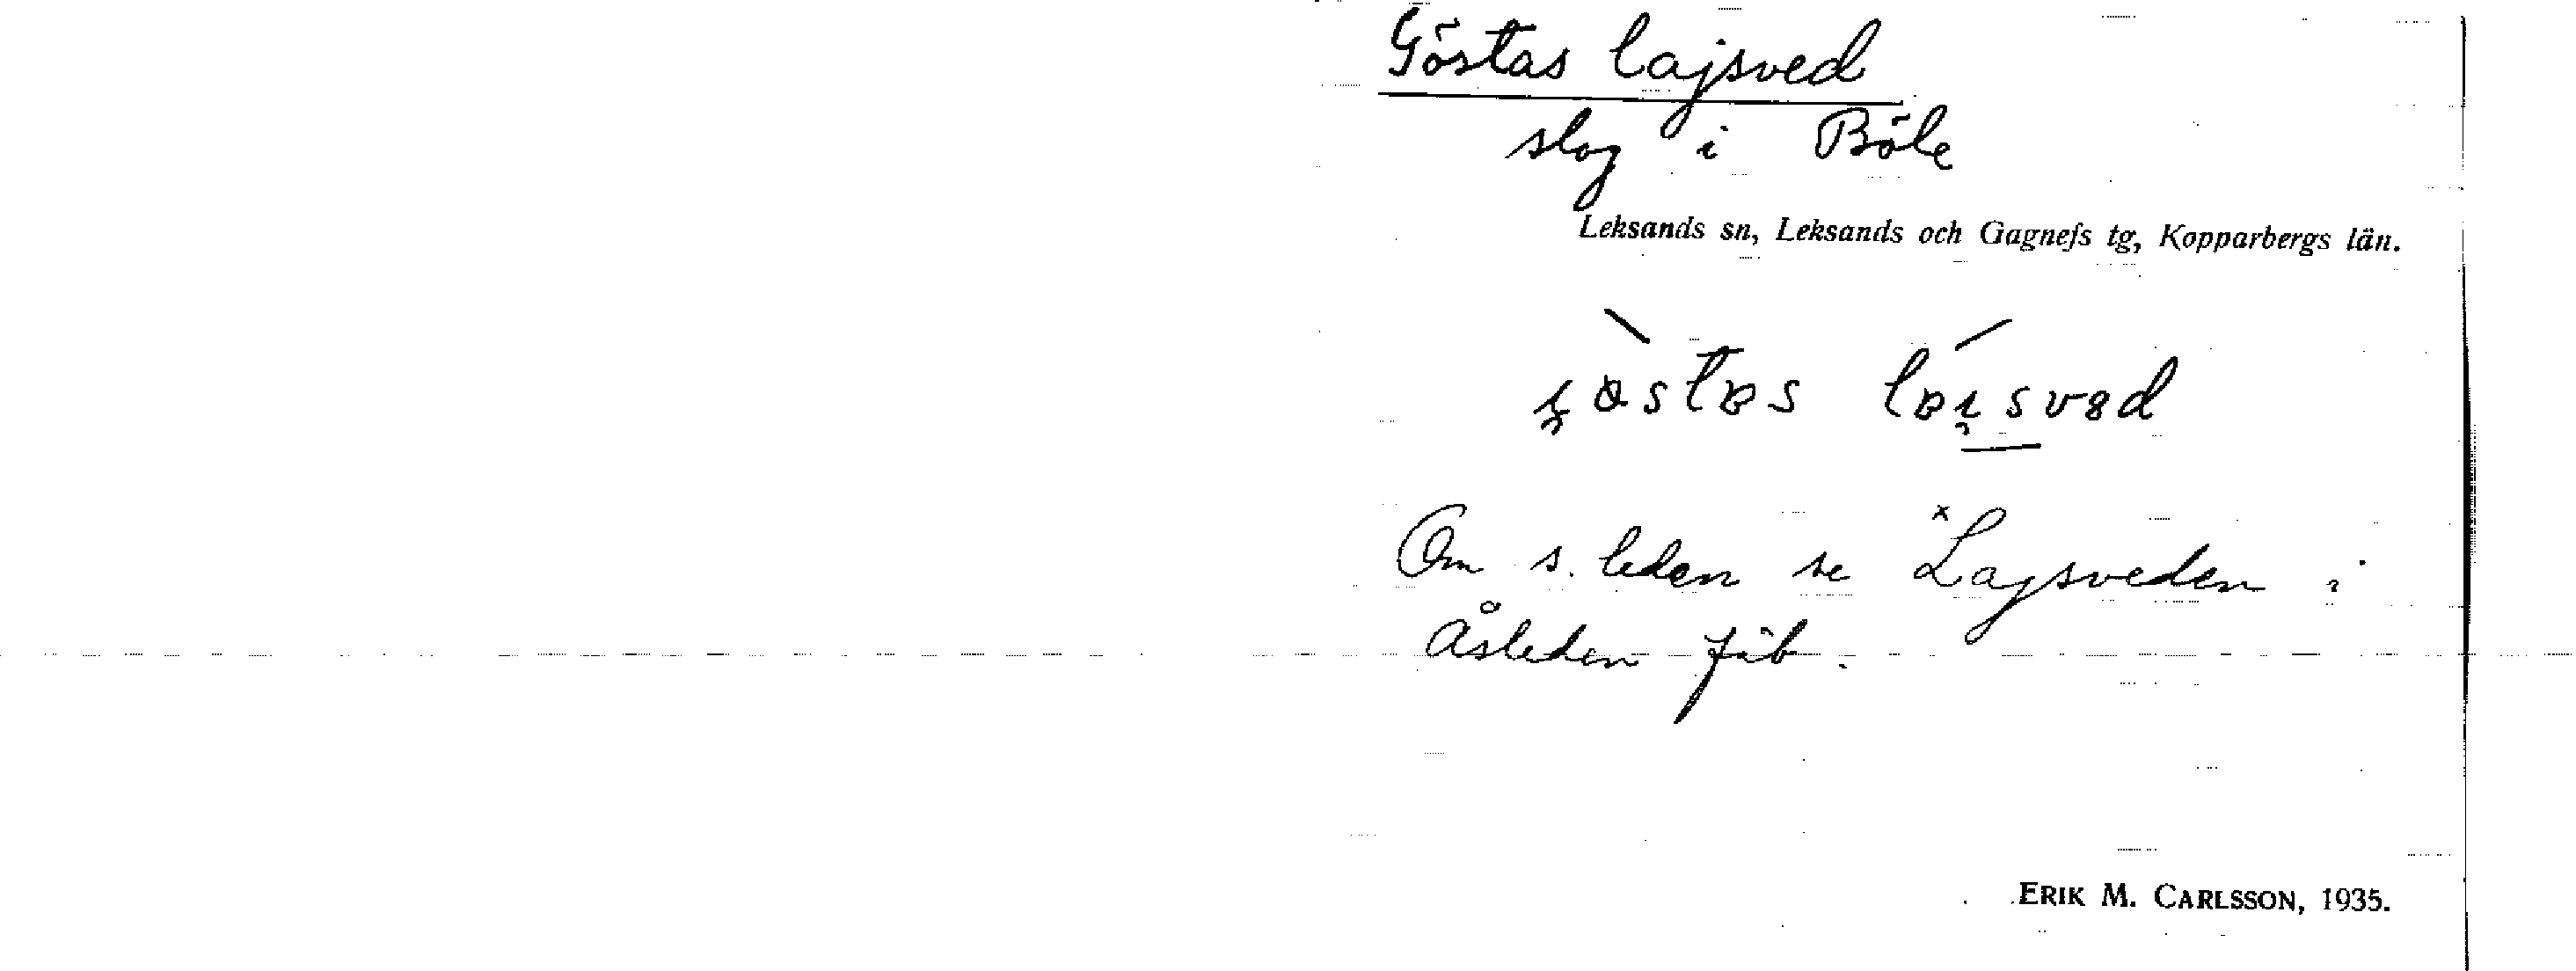 Göstas lajsved
slog i Böle
Leksands sn, Leksands och Gagnefs tg, Kopparbergs län.
Om s. leden se ˣLajsveden i
Åsleden fäb.
ERIK M. CARLSSON, 1935.